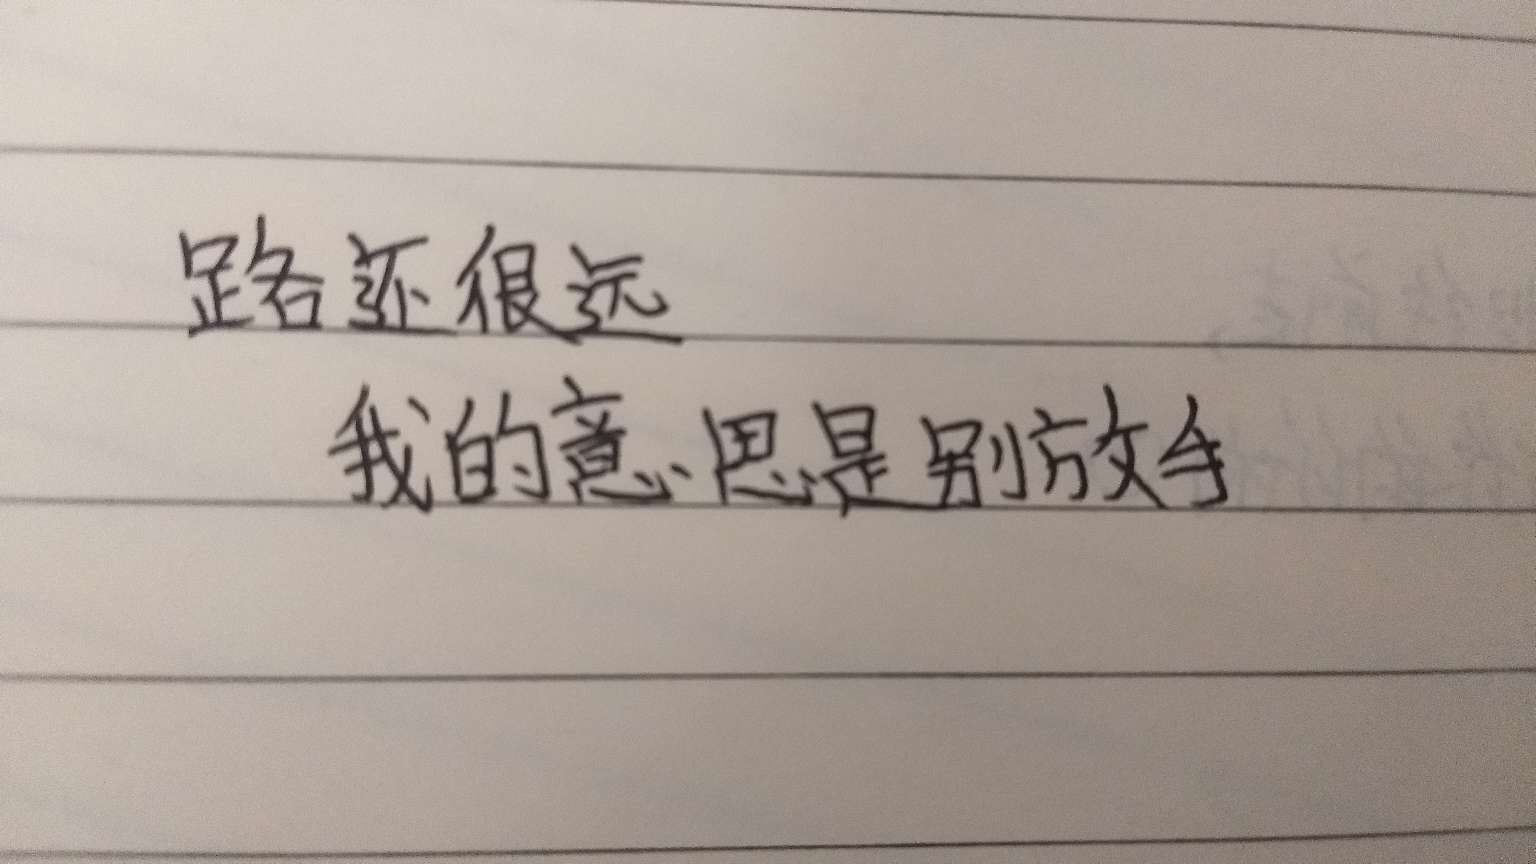 路还很远
我的意思是别放手